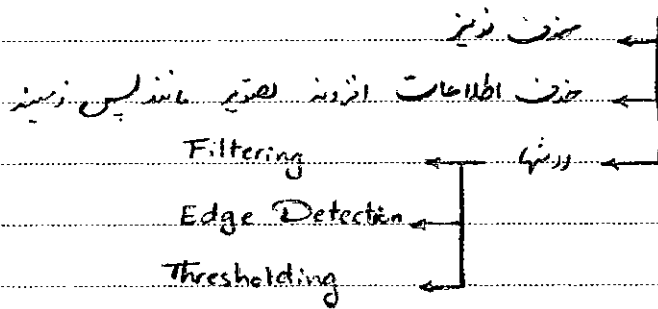 حذف نویز
حذف اطلاعات افزونه تصویر مانند پس زمینه
روشها Filtering
Edge Detection
Thresholding